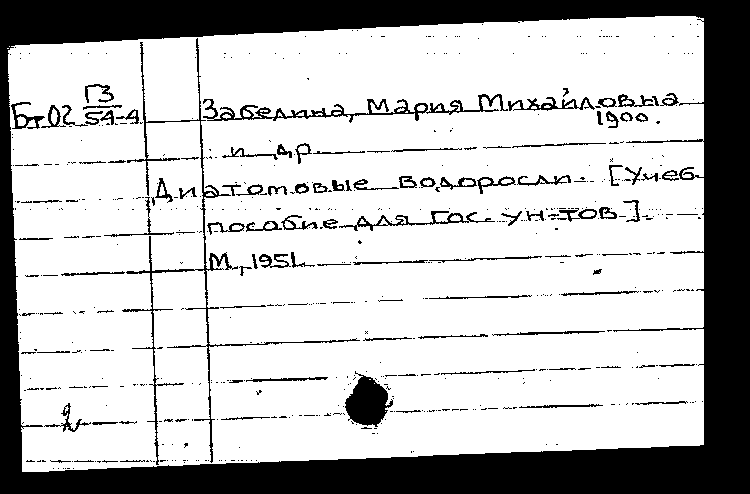 Бт02 Г3/54-4
Забелина, Мария Михайловна
1900.
и др.
Диатомовые водоросли. [Учеб.
пособие для гос. ун-тов].
М., 1951.